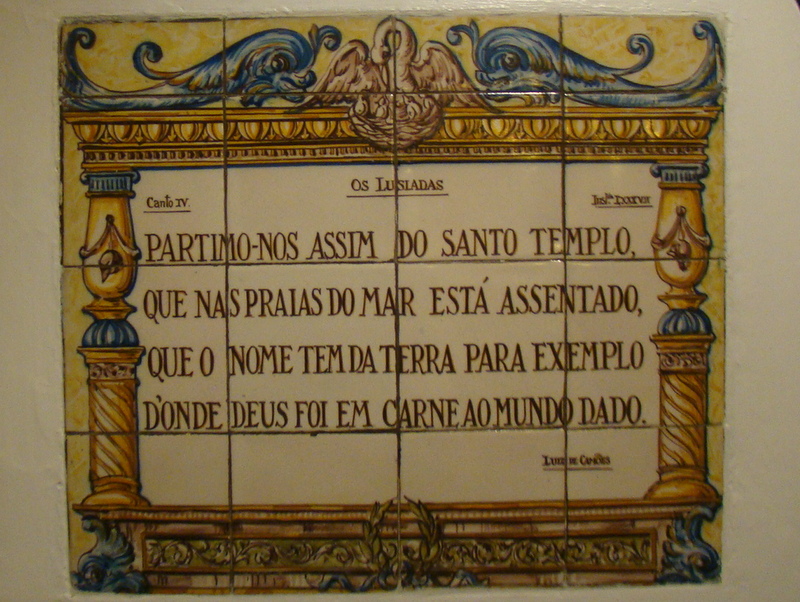 OS LUSIADAS
Canto IV.
PARTIMO-NOS ASSIM DO SANTO TEMPLO,
QUE NAS PRAIAS DO MAR ESTÁ ASSENTADO,
QUE O NOME TEM DA TERRA PARA EXEMPLO
D'ONDE DEUS FOI EM CARNE AO MUNDO DADO.
LUIZ DE CAMÕES